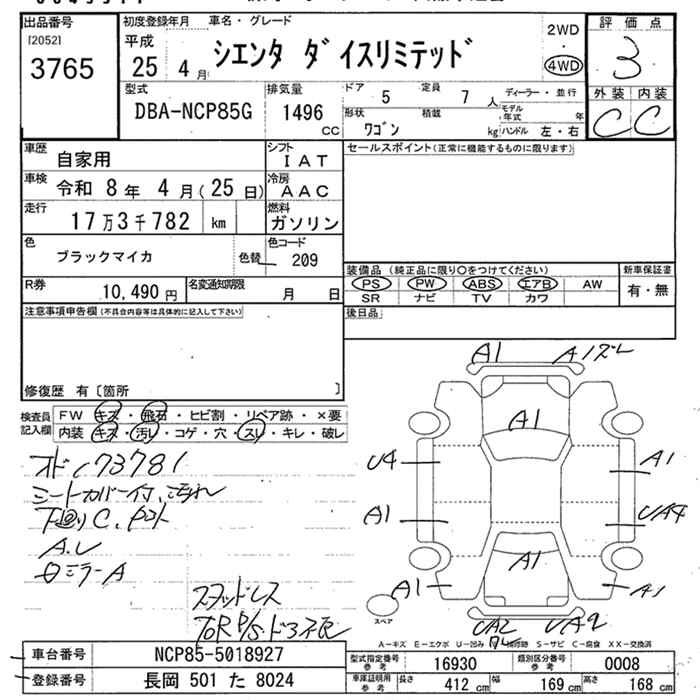 出品番号 初度登録年月 車名・グレード 評価点
[2052] 平成 2WD
3765 25 4月 シエンタ ダイスリミテッド ・ 3
4WD
型式 排気量 ドア 定員 ディーラー・並行 外装 内装
DBA-NCP85G 1496 CC 5 7人 モデル年式 年 C C
形状 積載
ワゴン kg ハンドル 左・右
車歴 自家用 シフト IAT セールスポイント(正常に機能するものに限ります)
車検 令和 8年 4月(25日) 冷房 AAC
走行 17万3千782 km 燃料 ガソリン
色 ブラックマイカ 色替 色コード 209
装備品 (純正品に限り○をつけてください) 新車保証書
R券 10,490円 名変通知期限 月 日 PS PW ABS エアB AW 有・無
SR ナビ TV カワ
注意事項申告欄(不具合内容等は具体的に記入して下さい) 後日品
修復歴 有〔箇所 〕
検査員記入欄 FW キズ・飛石・ヒビ割・リペア跡・×要
内装 キズ・汚レ・コゲ・穴・スレ・キレ・破レ
A1 A1ズレ
A1
U4 A1
A1 UA4
A1
A1 A1
UA2 UA2
オド173781
シートカバー付、汚れ
下廻りC、
A.U
ミラーA
スタッドレス
スペア
A-キズ E-エクボ U-凹み S-サビ C-腐食 XX-交換済
車台番号 NCP85-5018927 型式指定番号 参考 16930 類別区分番号 参考 0008
登録番号 長岡 501 た 8024 車庫証明用 参考 長さ 412 cm 幅 169 cm 高さ 168 cm